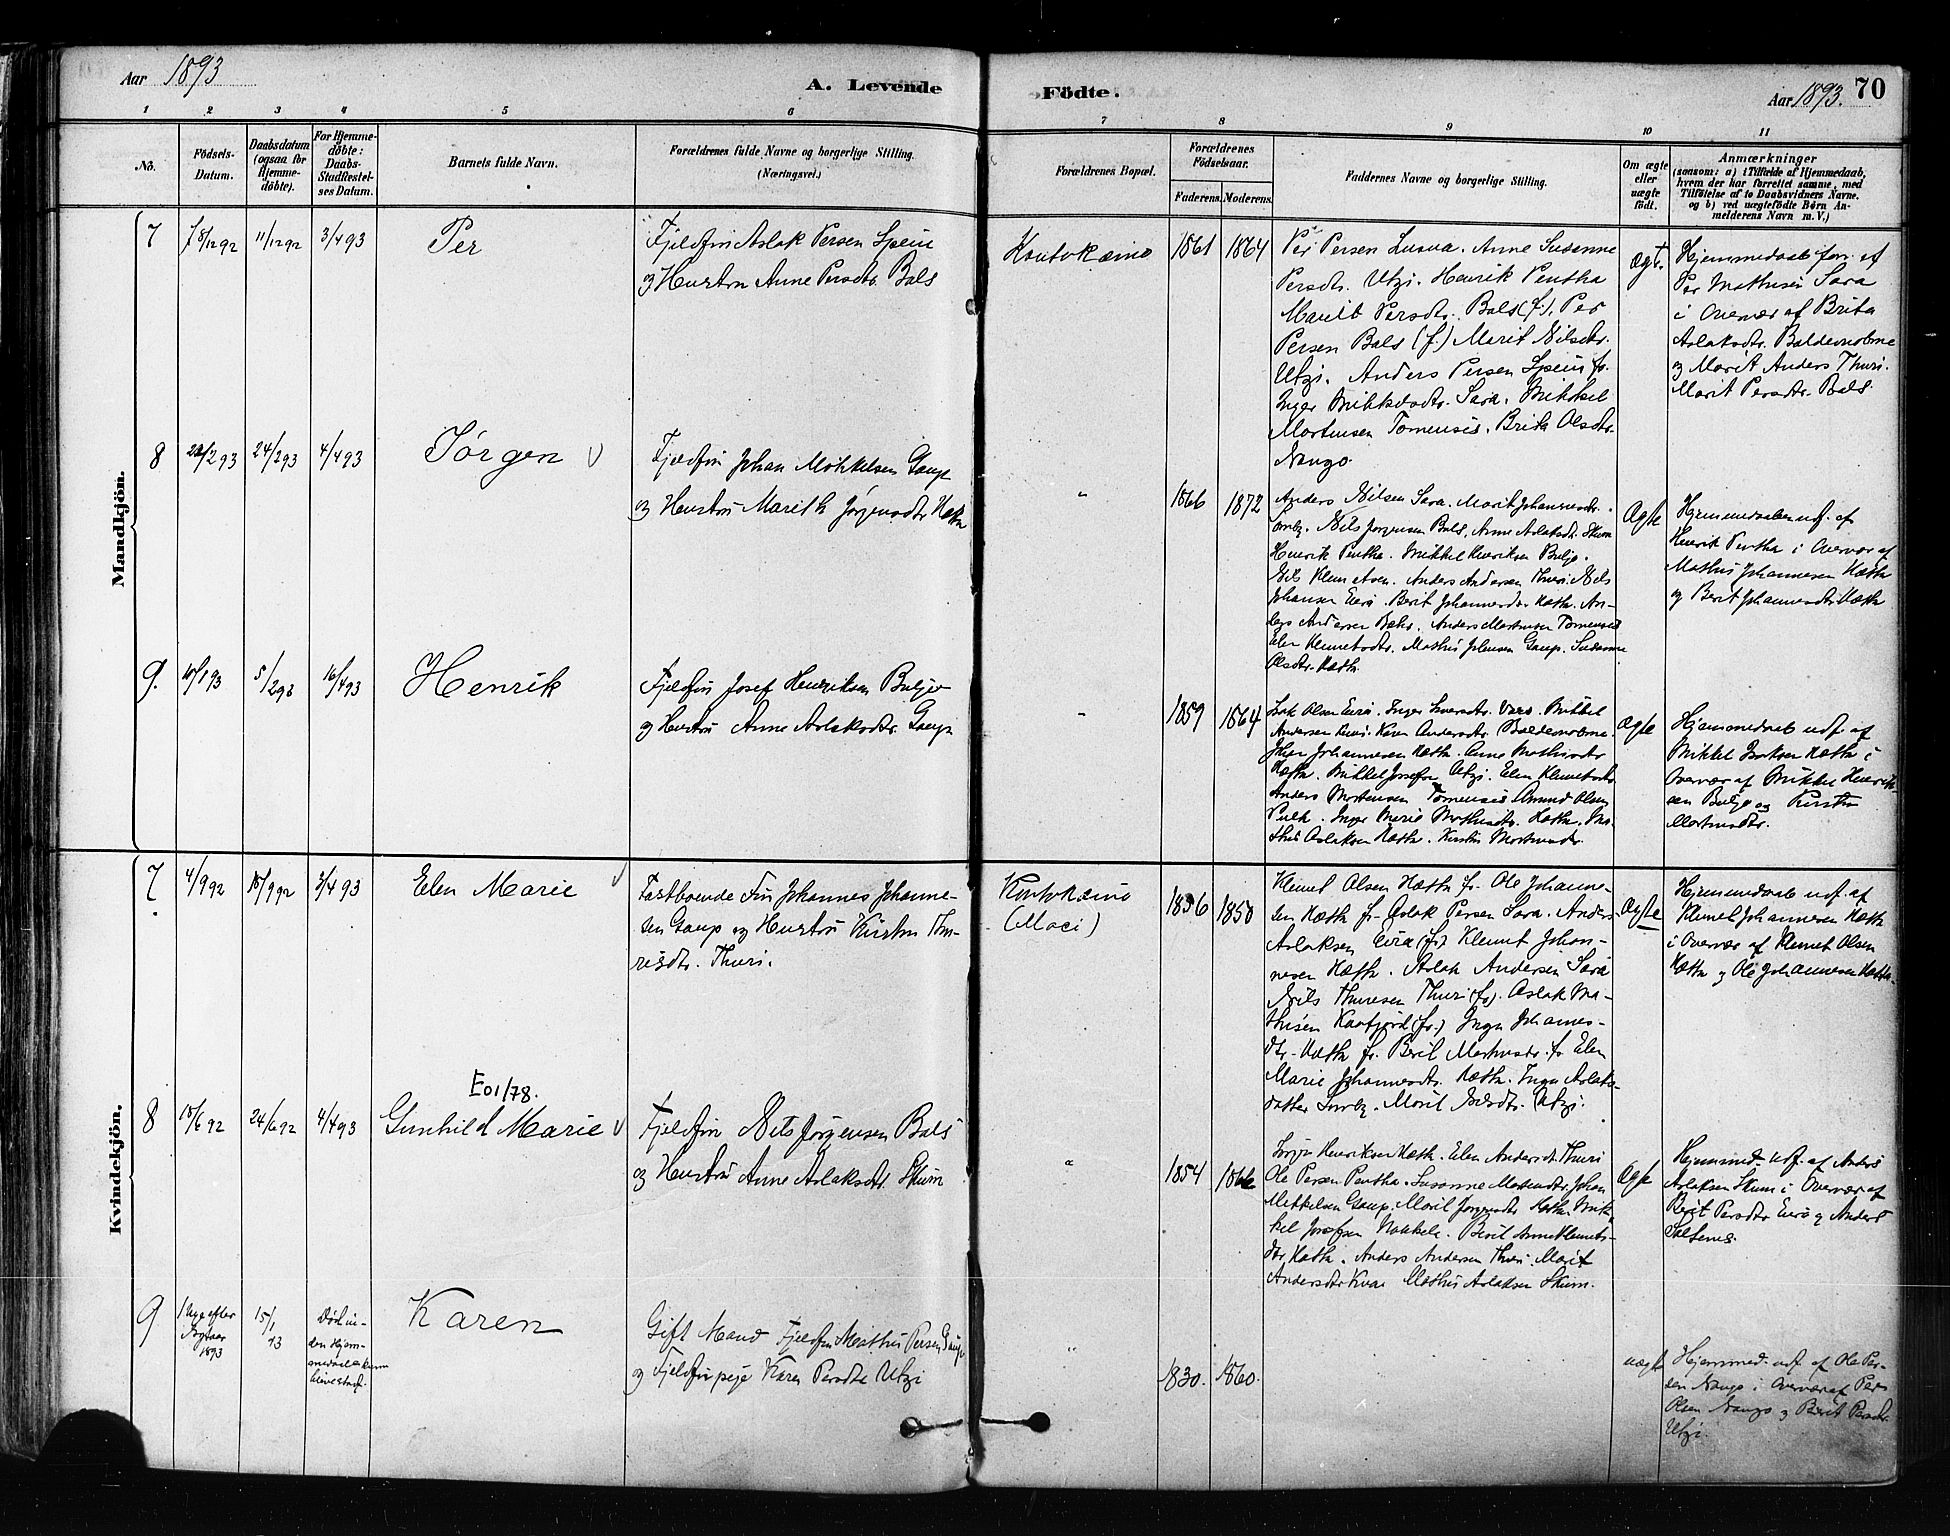 Aar 1893
A. Levende
Födte.
Aar 1893.
70
1 2 3 4 5 6 7 8 9 10 11
No.
Födsels-
Datum.
Daabsdatum
(ogsaa for
Hjemme-
döbte).
For Hjemme-
döbte:
Daabs-
Stadfæstel-
ses Datum.
Barnets fulde Navn.
Forældrenes fulde Navne og borgerlige Stilling.
(Næringsvei.)
Forældrenes Bopæl.
Forældrenes
Födselsaar.
Faderens. Moderens.
Faddernes Navne og borgerlige Stilling.
Om ægte
eller
uægte
födt.
Anmærkninger
(saasom: a) i Tilfælde af Hjemmedaab,
hvem der har forrettet samme, med
Tilföielse af to Daabsvidners Navne.
og b) ved uægtefödte Börn An-
melderens Navn m. V.)
Mandkjön.
7
11/1292
3/493
Per
Fjeldfin Aslak Persen Spein
og Hustru Anne Persdtr. Bals
Koutokæino
1861
1864
Per Persen Lusua. Anne Susanne
Persdtr. Utzi. Henrik Pentha
Marit Persdtr. Bals (f.), Per
Persen Bals (f.) Marit Nilsdtr.
Utzi. Anders Persen Spein fr.
Inger Mikkelsdtr. Sara. Mikkel
Mortensen Tornensis. Brita Olsdtr.
Nango.
Hjemmedaab forr. af
Per Mathisen Sara
i Overvær af Brita
Aslaksdtr.
og Marit Anders Thuri.
Marit Persdtr. Bals
8
24/293
4/493
Jørgen
Fjeldfin Johan Mikkelsen Gaup
og Hustru Marith Jørgensdtr. Hætta
"
1866
1872
Anders Nilsen Sara. Marit Johannesdtr.
Nils Jørgensen Bals, Anne Aslaksdtr. Skum
Henrik Pentha. Mikkel Henriksen Buljo.
Nils Klemetsen. Anders Andersen Thuri. Nils
Johansen Eira. Berit Johannesdtr. Hætta. An-
ders Andersen Bæhr. Anders Mortensen Tornensis
Elen Klemetsdtr. Mathis Johnsen Gaup. Susanne
Olsdtr. Hætta.
Ægte
Hjemmedaaben udf. af
Henrik Pentha i Overvær af
Mathis Johannesen Hætta
og Berit Johannesdtr. Hætta
9.
10/193
5/293
16/493
Henrik
Fjeldfin Josef Henriksen Buljo
og Hustru Anne Aslaksdtr. Gaup
1859
1864
Isak Olsen Eira. Inger Iversdtr. Vars. Mikkel
Andersen
Johan Johannesen Hætta. Anne Mathisdtr.
Hætta. Mikkel Josefsen Utzi. Elen Klemetsdtr.
Anders Mortensen Tornensis Amund Olsen
Pulk. Inger Marie Mathisdtr. Hætta. Ma-
this Aslaksen Hætta. Kirsten Mortensdtr.
Ægte
Hjemmedaab udf. af
Mikkel Isaksen Hætta i
Overvær af Mikkel Henrik-
sen Buljo og Kirsten
Mortensdtr.
Kvindekjön.
7.
4/992
3/493
Elen Marie
Fastboende Fin Johannes Johanne-
sen Gaup og Hustru Kirsten Thu-
risdtr. Thuri.
Koutokæino
(Maci)
1836
1850
Klemet Olsen Hætta fr. Ole Johanne-
sen Hætta fr. Aslak Persen Sara. Anders
Aslaksen Eira (fr.) Klemet Johan-
nesen Hætta. Aslak Andersen Sara
Nils Thuresen Thuri (fr.) Aslak Ma-
thisen Kaafjord (fr.) Inger Johannes-
dtr. Hætta fr. Berit Mortensdtr. fr. Elen
Marie Johannesdtr. Hætta. Inga Aslaks-
datter. Marit Nilsdtr. Utzi.
Ægte
Hjemmedaab udf. af
Klemet Johannesen Hætta
i Overvær af Klemet Olsen
Hætta og Ole Johannesen Hætta.
E01/78.
8
24/692
4/493
Gunhild Marie
Fjeldfin Nils Jørgensen Bals
og Hustru Anne Aslaksdtr. Skum
"
1854
1866
Henriksen Hætta. Elen Andersdtr. Thuri
Ole Persen Pentha. Susanne Mathisdtr. Johan
Mikkelsen Gaup. Marit Jørgensdtr. Hætta. Mik-
kel Josefsen Naakkala. Berit Anne Klemets-
dtr. Hætta. Anders Andersen Thuri. Marit
Andersdtr. Mathis Aslaksen Skum.
Ægte
Hjemmed. udf. af Anders
Aslaksen Skum i Overvær af
Berit Persdtr. Eira og Anders
9
1 Uge efter
Nytaar
1893
15/1
93
Død in-
den Hjem-
medaaben kunne
blive stadf.
Karen
Gift Mand Fjeldfin Mathis Persen Gaup
og Fjeldfinpige Karen Persdtr. Utzi
"
1830.
1860.
uægte
Hjemmed. udf. af Ole Per-
sen Nango i Overvær af Per
Olsen Nango og Berit Persdtr.
Utzi.